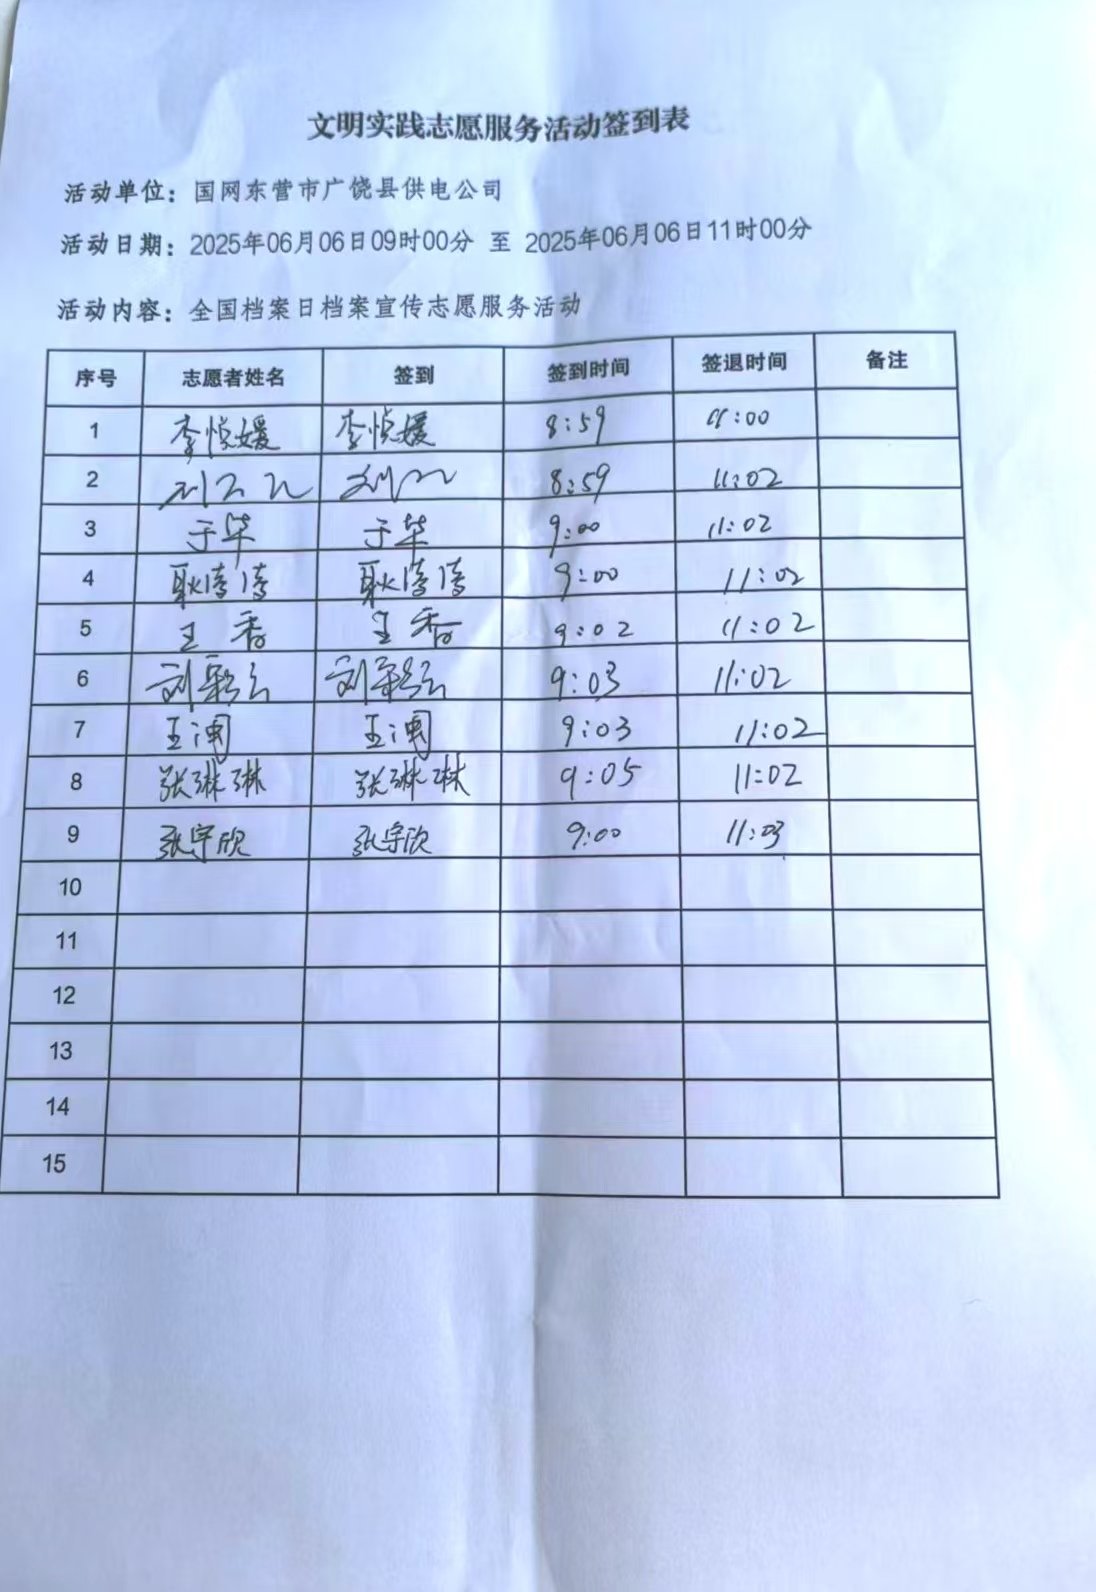 文明实践志愿服务活动签到表
活动单位：国网东营市广饶县供电公司
活动日期：2025年06月06日09时00分 至 2025年06月06日11时00分
活动内容：全国档案日档案宣传志愿服务活动
序号 志愿者姓名 签到 签到时间 签退时间 备注
1 李悦媛 李悦媛 8:59 11:00
2 刘 刘 8:59 11:02
3 于华 于华 9:00 11:02
4 耿清清 耿清清 9:00 11:02
5 王香 王香 9:02 11:02
6 刘 刘 9:03 11:02
7 王闽 王闽 9:03 11:02
8 张琳琳 张琳琳 9:05 11:02
9 张宇欣 张宇欣 9:00 11:03
10
11
12
13
14
15